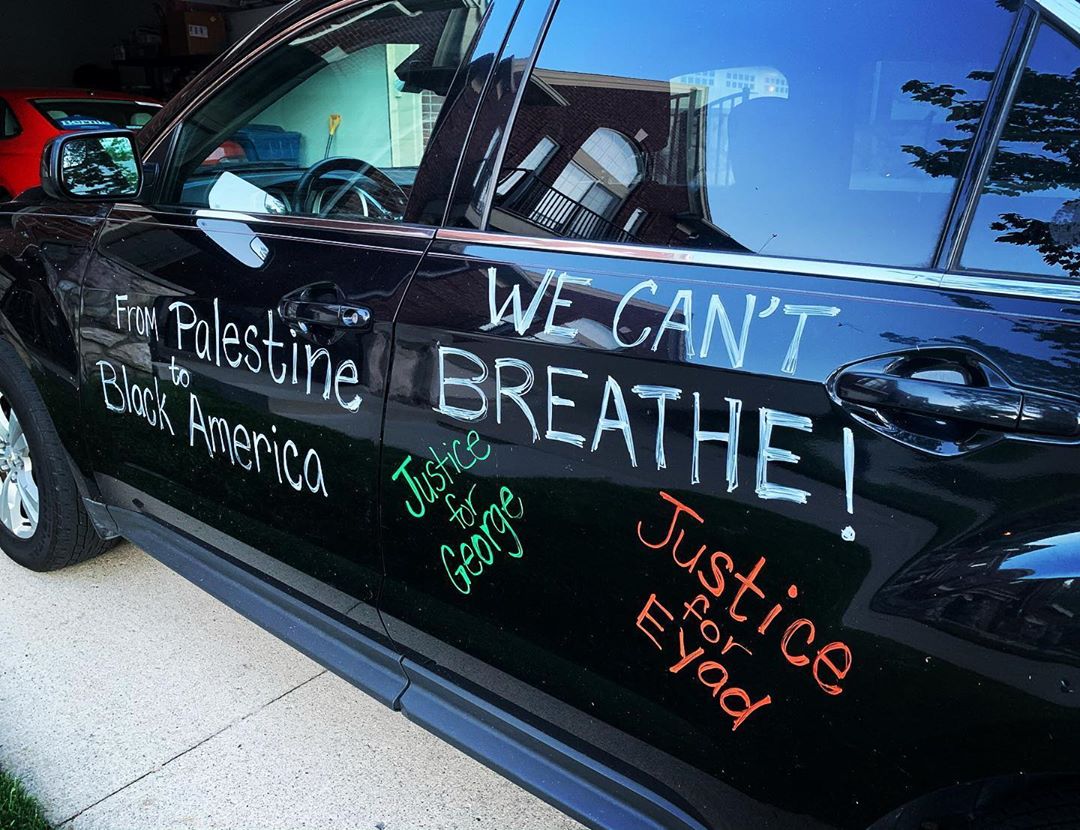 From Palestine
to
Black America
WE CAN'T
BREATHE!
Justice
for
George
Justice
for
Eyad